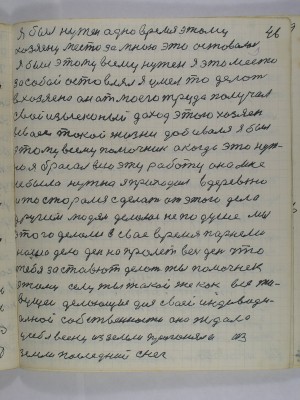 46
я был нужен одно время этому
хозяину место за мною это оставалось
я был этому всему нужен я это место
за собой оставлял я умел то делат
в хозяено он от моего труда получал
свой доход этого хозяен
такой жизни добивался я был
этому всему помочник а когда это нуж-
но я бросал всю эту работу она мне
небыло нужно я приходил в деревню
и то старался сделат от этого дела
другие людям делали не по душе мы
этого делали в свае время парнем
нашо дело ден на пролёт вес ден это
тебя заставют делат ты помочнек
этому селу ты такой же как все
делающие для своей индевиду-
алной собственности она ждала
у себя весну из земли прогоняла из
земли последний снег